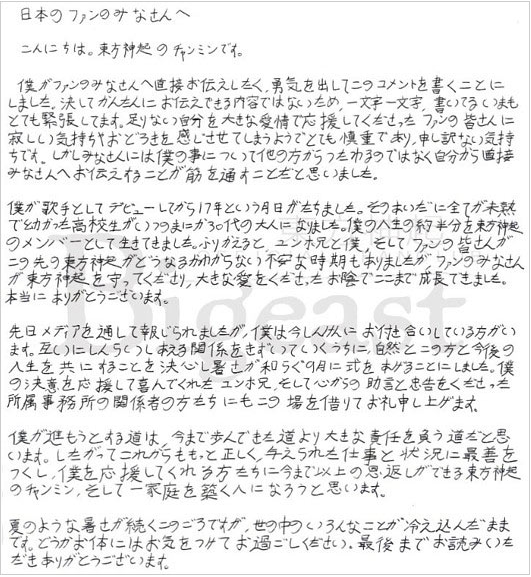 日本のファンのみなさんへ
こんにちは。東方神起のチャンミンです。
僕がファンのみなさんへ直接お伝えしたく,勇気を出してこのコメントを書くことに
しました。決してかんたんにお伝えできる内容ではないため,一文字一文字,書いているいまも
とても緊張してます。足りない自分を大きな愛情で応援してくださったファンの皆さんに
寂しい気持ちやおどろきを感じさせてしまうようでとても慎重であり,申し訳ない気持
ちです。しかしみなさんには僕の事について他の方からつたわるのではなく自分から直接
みなさんへお伝えすることが筋を通すことだと思いました。
僕が歌手としてデビューしてから17年という月日がたちました。そのあいだに全てが未熟
で幼かった高校生がいつのまにか30代の大人になりました。僕の人生の約半分を東方神起
のメンバーとして生きてきました。ふりかえると,ユンホ兄と僕,そしてファンの皆さんが
この先の東方神起がどうなるかわからない不安な時期もありましたが,ファンのみなさん
が東方神起を守ってくださり,大きな愛をくださったお陰でここまで成長できました。
本当にありがとうございます。
先日メディアを通して報じられましたが,僕は今しんけんにお付き合いしている方がい
ます。互いにしんらいしあえる関係をきずいていくうちに,自然とこの方と今後の
人生を共にすることを決心し暑さが和らぐ9月に式をあげることにしました。僕
の決意を応援して喜んでくれたユンホ兄,そして心からの助言と忠告をくださった
所属事務所の関係者の方たちにもこの場を借りてお礼申し上げます。
僕が進もうとする道は,今まで歩んできた道より大きな責任を負う道だと思
います。したがってこれからももっと正しく,与えられた仕事と状況に最善を
つくし,僕を応援してくれる方たちに今まで以上の恩返しができる東方神起
のチャンミン,そして一家庭を築く人になろうと思います。
夏のような暑さが続くこのごろですが,世の中のいろんなことが冷え込んだまま
です。どうかお体にはお気をつけてお過ごしください。最後までお読みいた
だきありがとうございます。
Bigeast